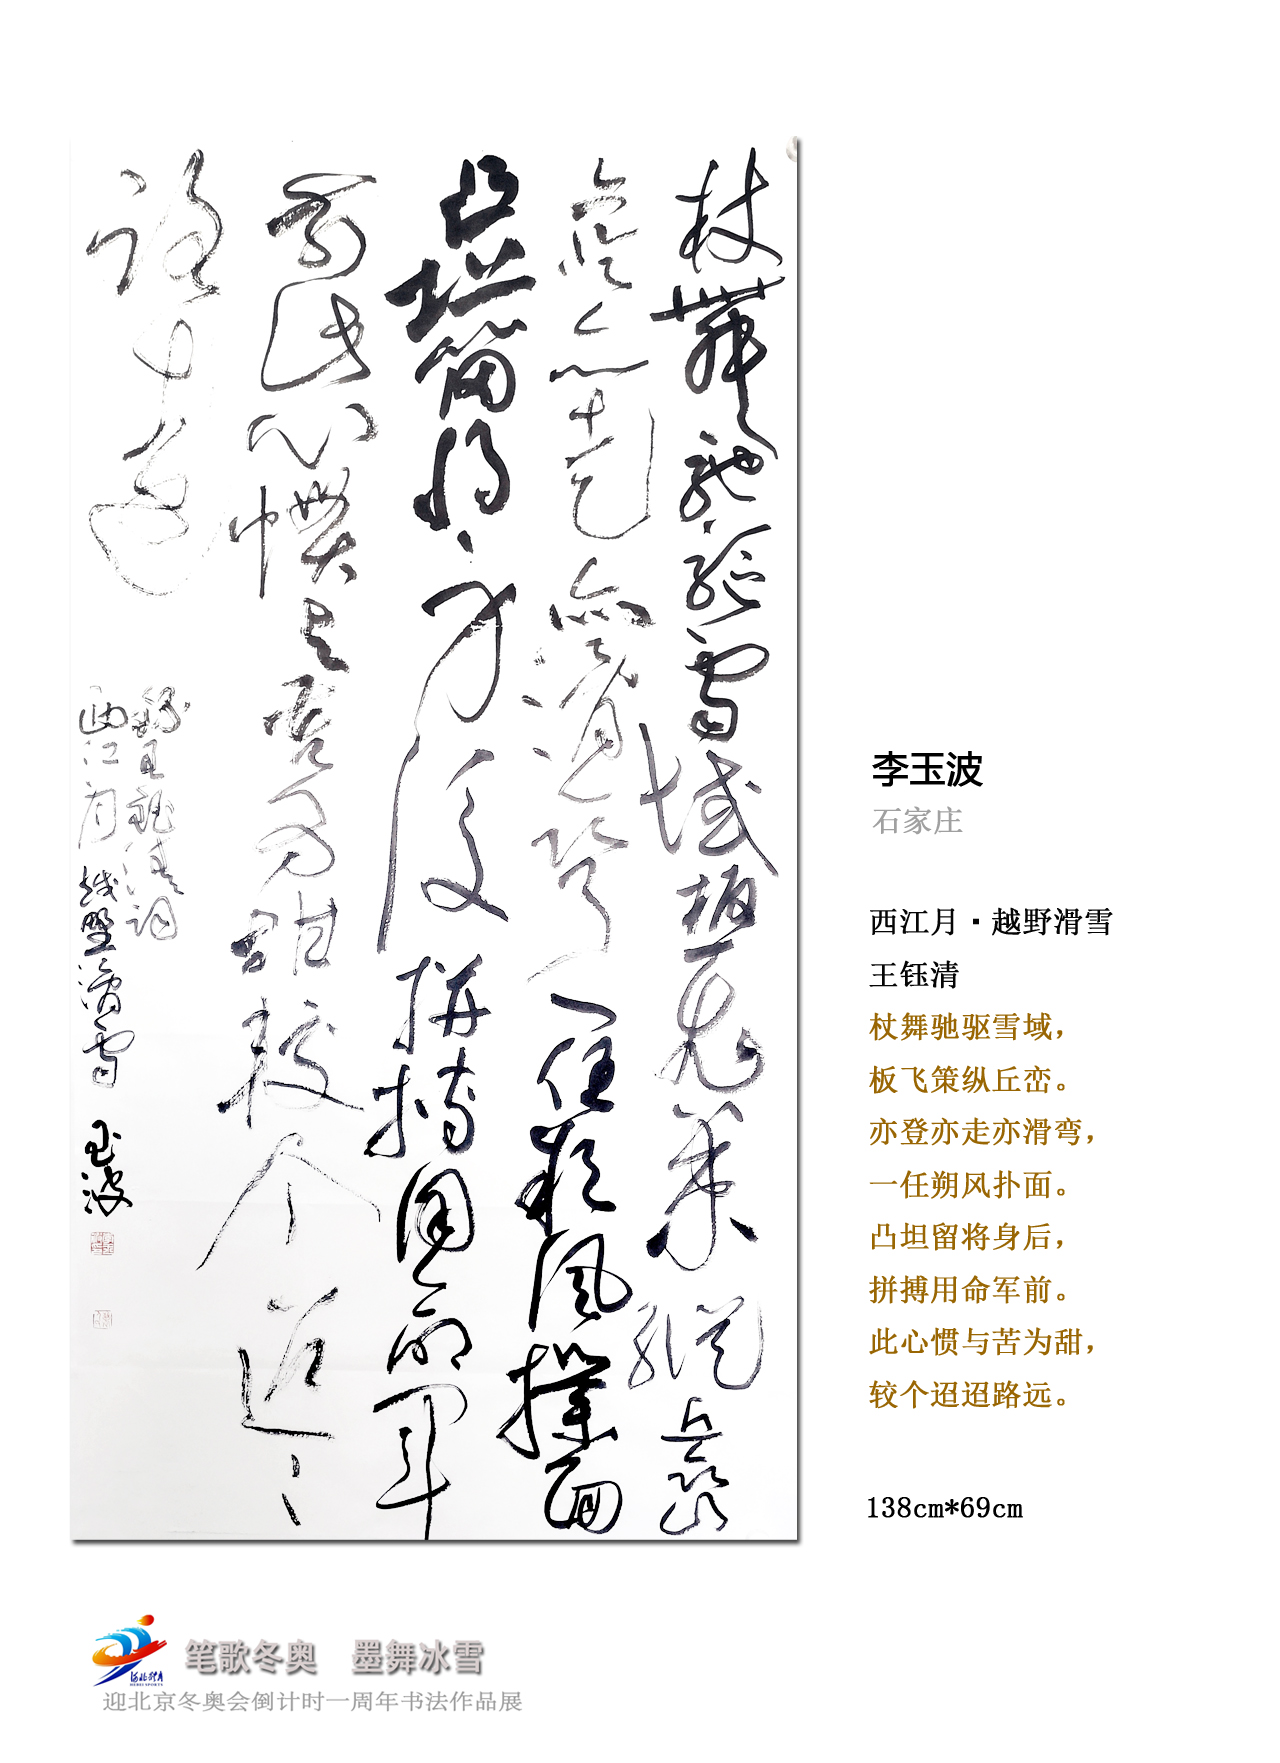 杖舞馳驅雪域板飛策縱丘巒
亦登亦走亦滑彎一任朔風撲面
凸坦留將身後拼搏用命軍
前此心慣与苦为甜較个迢迢
路遠
錄王鈺清詞
西江月越野滑雪 玉波
李玉波
石家庄
西江月·越野滑雪
王钰清
杖舞驰驱雪域，
板飞策纵丘峦。
亦登亦走亦滑弯，
一任朔风扑面。
凸坦留将身后，
拼搏用命军前。
此心惯与苦为甜，
较个迢迢路远。
138cm*69cm
河北体育
HEBEI SPORTS
笔歌冬奥 墨舞冰雪
迎北京冬奥会倒计时一周年书法作品展